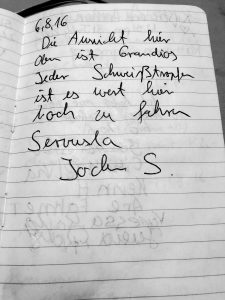 6,8,16
Die Aussicht hier
oben ist Grandios
Jeder Schweißtropfen
ist es wert hier
hoch zu fahren
Servusla
Jochen S.